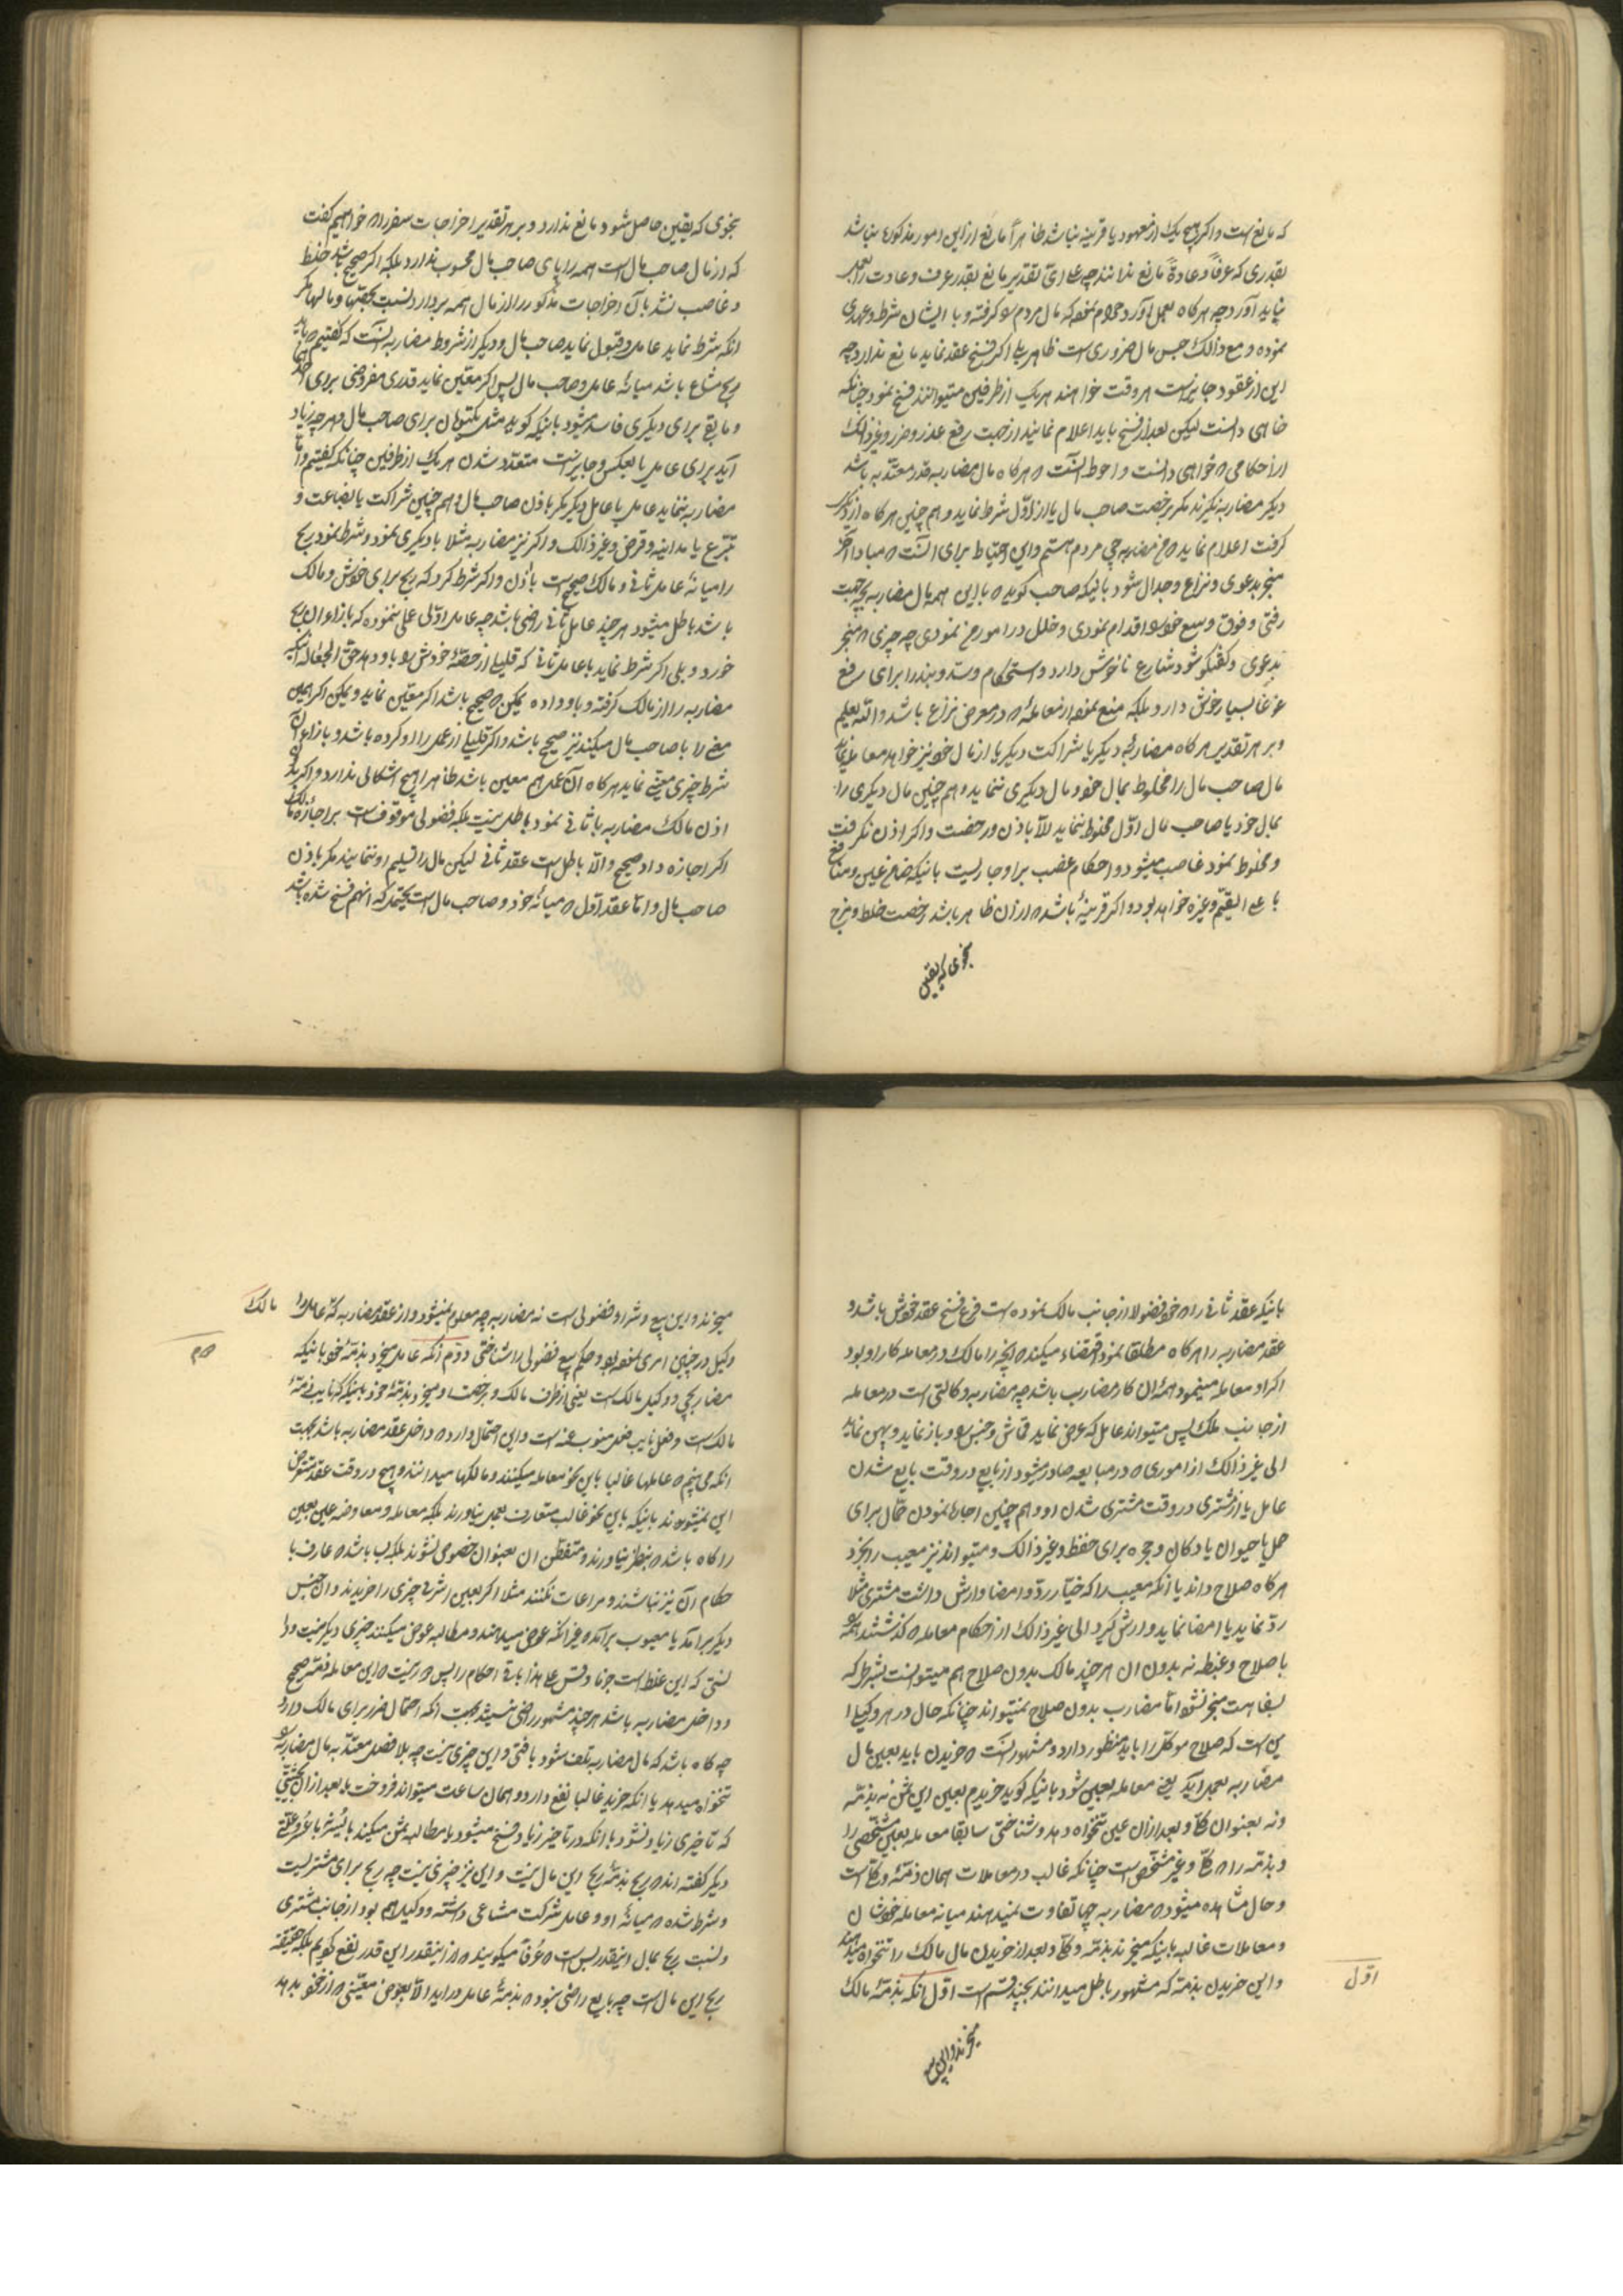 که مانع است و اکر هیچ یک از معهود یا قرینه نباشد ظاهراً مانع از این امور مذکوره نباشد
بقدری که عرفاً و عادةً مانع ندانند چه علی ای تقدیر مانع بقدر عرف و عادت را بعمل
نباید آورد چه هرکاه بعمل آورد که مال مردم کرفته و با ایشان شرط و عهدی
نموده و مع ذالک حبس مال ضروری است ظاهر بلی اکر فسخ عقد نماید مانع ندارد چه
این از عقود جایز است هر وقت خواهند هریک از طرفین میتوانند فسخ نمود چنانکه
خواهی دانست لیکن بعد از فسخ باید اعلام نمایند از جهت رفع عذر و ضرر و غیر ذالک
از احکامی خواهی دانست و احوط آنست هرکاه مال مضاربه قدر معتد به باشد
دیکر مضاربه نکیرند مکر برخصت صاحب مال یا از اول شرط نماید و هم چنین هرکاه از دیکر
کرفت اعلام نماید مضاربه چی مردم هستم و این احتیاط برای آنست مبادا آخر
منجر بدعوی و نزاع و جدال شود باینکه صاحب کوید با این همه مال مضاربه بچه جهت
رفتی و فوق وسع خود اقدام نمودی و خلل در امور نمودی چه چیزی منجر
بدعوی و کفتکو شود شارع ناخوش دارد و استحکام و سد و بند را برای رفع
غوغا بسیار خوش دارد بلکه منع نموده از معامله در معرض نزاع باشد والله یعلم
و بر هر تقدیر هرکاه مضاربه دیکر یا شراکت دیکر یا از مال خود نیز خواهد معامله نماید
مال صاحب مال را مخلوط بمال خود و مال دیکری ننماید و هم چنین مال دیکری را
بمال خود یا صاحب مال اول مخلوط ننماید الا باذن و رخصت و اکر اذن نکرفت
و مخلوط نمود غاصب میشود و احکام غصب بر او جاریست باینکه ضامن عین و منافع
با علی القیم و غیره خواهد بود و اکر قرینه باشد از آن ظاهر باشد رخصت خلط و مزج
بنحوی که یقین
بنحوی که یقین حاصل شود مانع ندارد و بر هر تقدیر اخراجات سفر را خواهیم کفت
که از مال صاحب مال است همه را پای صاحب مال محسوب ندارد بلکه اکر صحیح باشد خلط
و غاصب نشد بآن اخراجات مذکور را از مال همه بردارد بنسبت و مالها مکر
آنکه شرط نماید عامل و قبول نماید صاحب مال و دیکر از شروط مضاربه آنست که کفتیم باید
ربح مشاع باشد میانه عامل و صاحب مال پس اکر معین نماید قدری مفروضی برای احدهما
و مابقی برای دیکری فاسد میشود باینکه کوید مثل یکتومان برای صاحب مال و هر چه زیاد
آید برای عامل یا بعکس و جایز است متعدد شدن هریک از طرفین چنانکه کفتیم و اما
مضاربه ننماید عامل با عامل دیکر مکر باذن صاحب مال و هم چنین شراکت یا بضاعت و
تبرع یا مداینه و قرض و غیر ذالک و اکر نیز مضاربه مثلا با دیکری نمود و شرط نمود ربح
را میانه عامل ثانی و مالک صحیح است باذن و اکر شرط کرد که ربح برای خودش و مالک
باشد باطل میشود هر چند عامل ثانی راضی باشد چه عامل اولی عملی ننموده که بازاء آن ربح
خورد و بلی اکر شرط نماید با عامل ثانی که قلیلی از حصه خودش باو دهد حق الجعاله اینکه
مضاربه را از مالک کرفته و باو داده یمکن صحیح باشد اکر معین نماید و یمکن اکر همین
مع را با صاحب مال میکند نیز صحیح باشد و اکر قلیلی از عمل را او کرده باشد و بازاء آن
شرط چیزی معینی نماید هرکاه آن عمل هم معین باشد ظاهرا هیچ اشکالی ندارد و اکر بی
اذن مالک مضاربه با ثانی نمود باطل نیست بلکه فضولی موقوفست بر اجازه مالک
اکر اجازه داد صحیح والا باطل است عقد ثانی لیکن مال را تسلیم او ننمایند مکر باذن
صاحب مال و اما عقد اول میانه خود و صاحب مال است یحتمل که آنهم فسخ شده باشد
باینکه عقد ثانی را خود فضولا از جانب مالک نموده است فرع فسخ عقد خودش باشد و
عقد مضاربه را هرکاه مطلقا نمود اقتضاء میکند آنچه را مالک در معامله کار او بود
اکر او معامله مینمود همه آن کار مضارب باشد چه مضاربه وکالتی است در معامله
از جانب ملک پس میتواند عامل که عرض نماید قماش و جنس و باز نماید و پهن نماید
الی غیر ذالک از اموری در مبایعه صادر میشود از بایع در وقت بایع شدن
عامل یا از مشتری در وقت مشتری شدن او و هم چنین اجاره نمودن حمال برای
حمل یا حیوان یا دکان و حجره برای حفظ و غیر ذالک و میتواند نیز معیب را بخرد
هرکاه صلاح داند یا آنکه معیب را که خیار رد و امضا و ارش داشت مشتری مثلا
رد نماید یا امضا نماید و ارش کیرد الی غیر ذالک از احکام معامله کذشتند همه
با صلاح و غبطه نه بدون آن هر چند مالک بدون صلاح هم میتوانست بشرطی که
بسفاهت منجر نشود اما مضارب بدون صلاح نمیتواند چنانکه حال در هر وکیل
این است که صلاح موکل را باید منظور دارد و مشهور آنست خریدن باید بعین مال
مضاربه بعمل آید یعنی معامله بعین شود باینکه کوید خریدم بعین این ثمن نه بذمه
و نه بعنوان کلی و بعد از آن عین تنخواه دهد و شناختی سابقا معامله بعین مشخصی را
و بذمه را کلی و غیر مشخص است چنانکه غالب در معاملات همان ذمه و کلی است
و حال مشاهده میشود مضاربه چیها تفاوت نمیدهند میانه معامله خودشان
و معاملات غالبه باینکه میخرند بذمه و کلی و بعد از خریدن مال مالک را تنخواه میدهند
و این خریدن بذمه که مشهور باطل میدانند بچند قسم است اول آنکه بذمه مالک
اول
میخرند و این بیع
میخرند و این بیع و شراء فضولی است نه مضاربه چه معلوم نمیشود از عقد مضاربه که عامل را مالک
وکیل در چنین امری نموده بود و حکم بیع فضولی را شناختی دوم آنکه عامل میخرد بذمه خود باینکه
مضاربه چی و وکیل مالک است یعنی از طرف مالک و برخصت او میخرد بذمه خود باینکه که نایب ذمه
مالک است و فعل نایب فعل منوب عنه است و این احتمال دارد داخل عقد مضاربه باشد بجهت
آنکه می بینیم عاملها غالبا باین نحو معامله میکنند و مالکها میدانند و هیچ در وقت عقد متعرض
این نمیشوند باینکه باین نحو غالب متعارف بعمل نیاورند بلکه معامله و معاوضه عین بعین
را کاه باشد بنظر نیاورند و متفطن آن بعنوان خصوصی نشوند بلکه بسا باشد عارف با
حکام آن نیز نباشند و مراعات نکنند مثلا اکر بعین اشرفی چیزی را خریدند و آن جنس
دیکر برآمد یا معیوب برآمد غیر آنکه عوض میدهند و مطالبه عوض میکنند چیزی دیکر نیست و دا
نستی که این غلط است جزما و قس علی هذا باقی احکام را پس نیست این معامله ذمه صحیح
و داخل مضاربه باشد هر چند مشهور راضی نمیشوند بجهت آنکه احتمال ضرر برای مالک دارد
چه کاه باشد که مال مضاربه تلف شود یا فتی و این چیزی نیست چه بلا فصل معتد به مال مضاربه
تنخواه میدهد یا آنکه خرید غالبا نفع دارد و همان ساعت میتواند فروخت یا بعد از آن
که تاخیری زیاد نشود با آنکه در تاخیر زیاد فسخ میشود یا مطالبه ثمن میکند بایسر یا عسر و علتی
دیکر کفته اند ربح بذمه ربح این مال نیست و این نیز چیزی نیست چه ربح برای مشتریست
و شرط شده میانه او و عامل شرکت مشاعی داشته و وکیل هم بود از جانب مشتری
و نسبت ربح بمال اینقدر بس است عرفا میکویند از اینقدر این قدر نفع کردیم بلکه حقیقة
ربح این مال است چه بایع راضی نبود بذمه عامل در اید الا بعوض معینی از خود بدهد